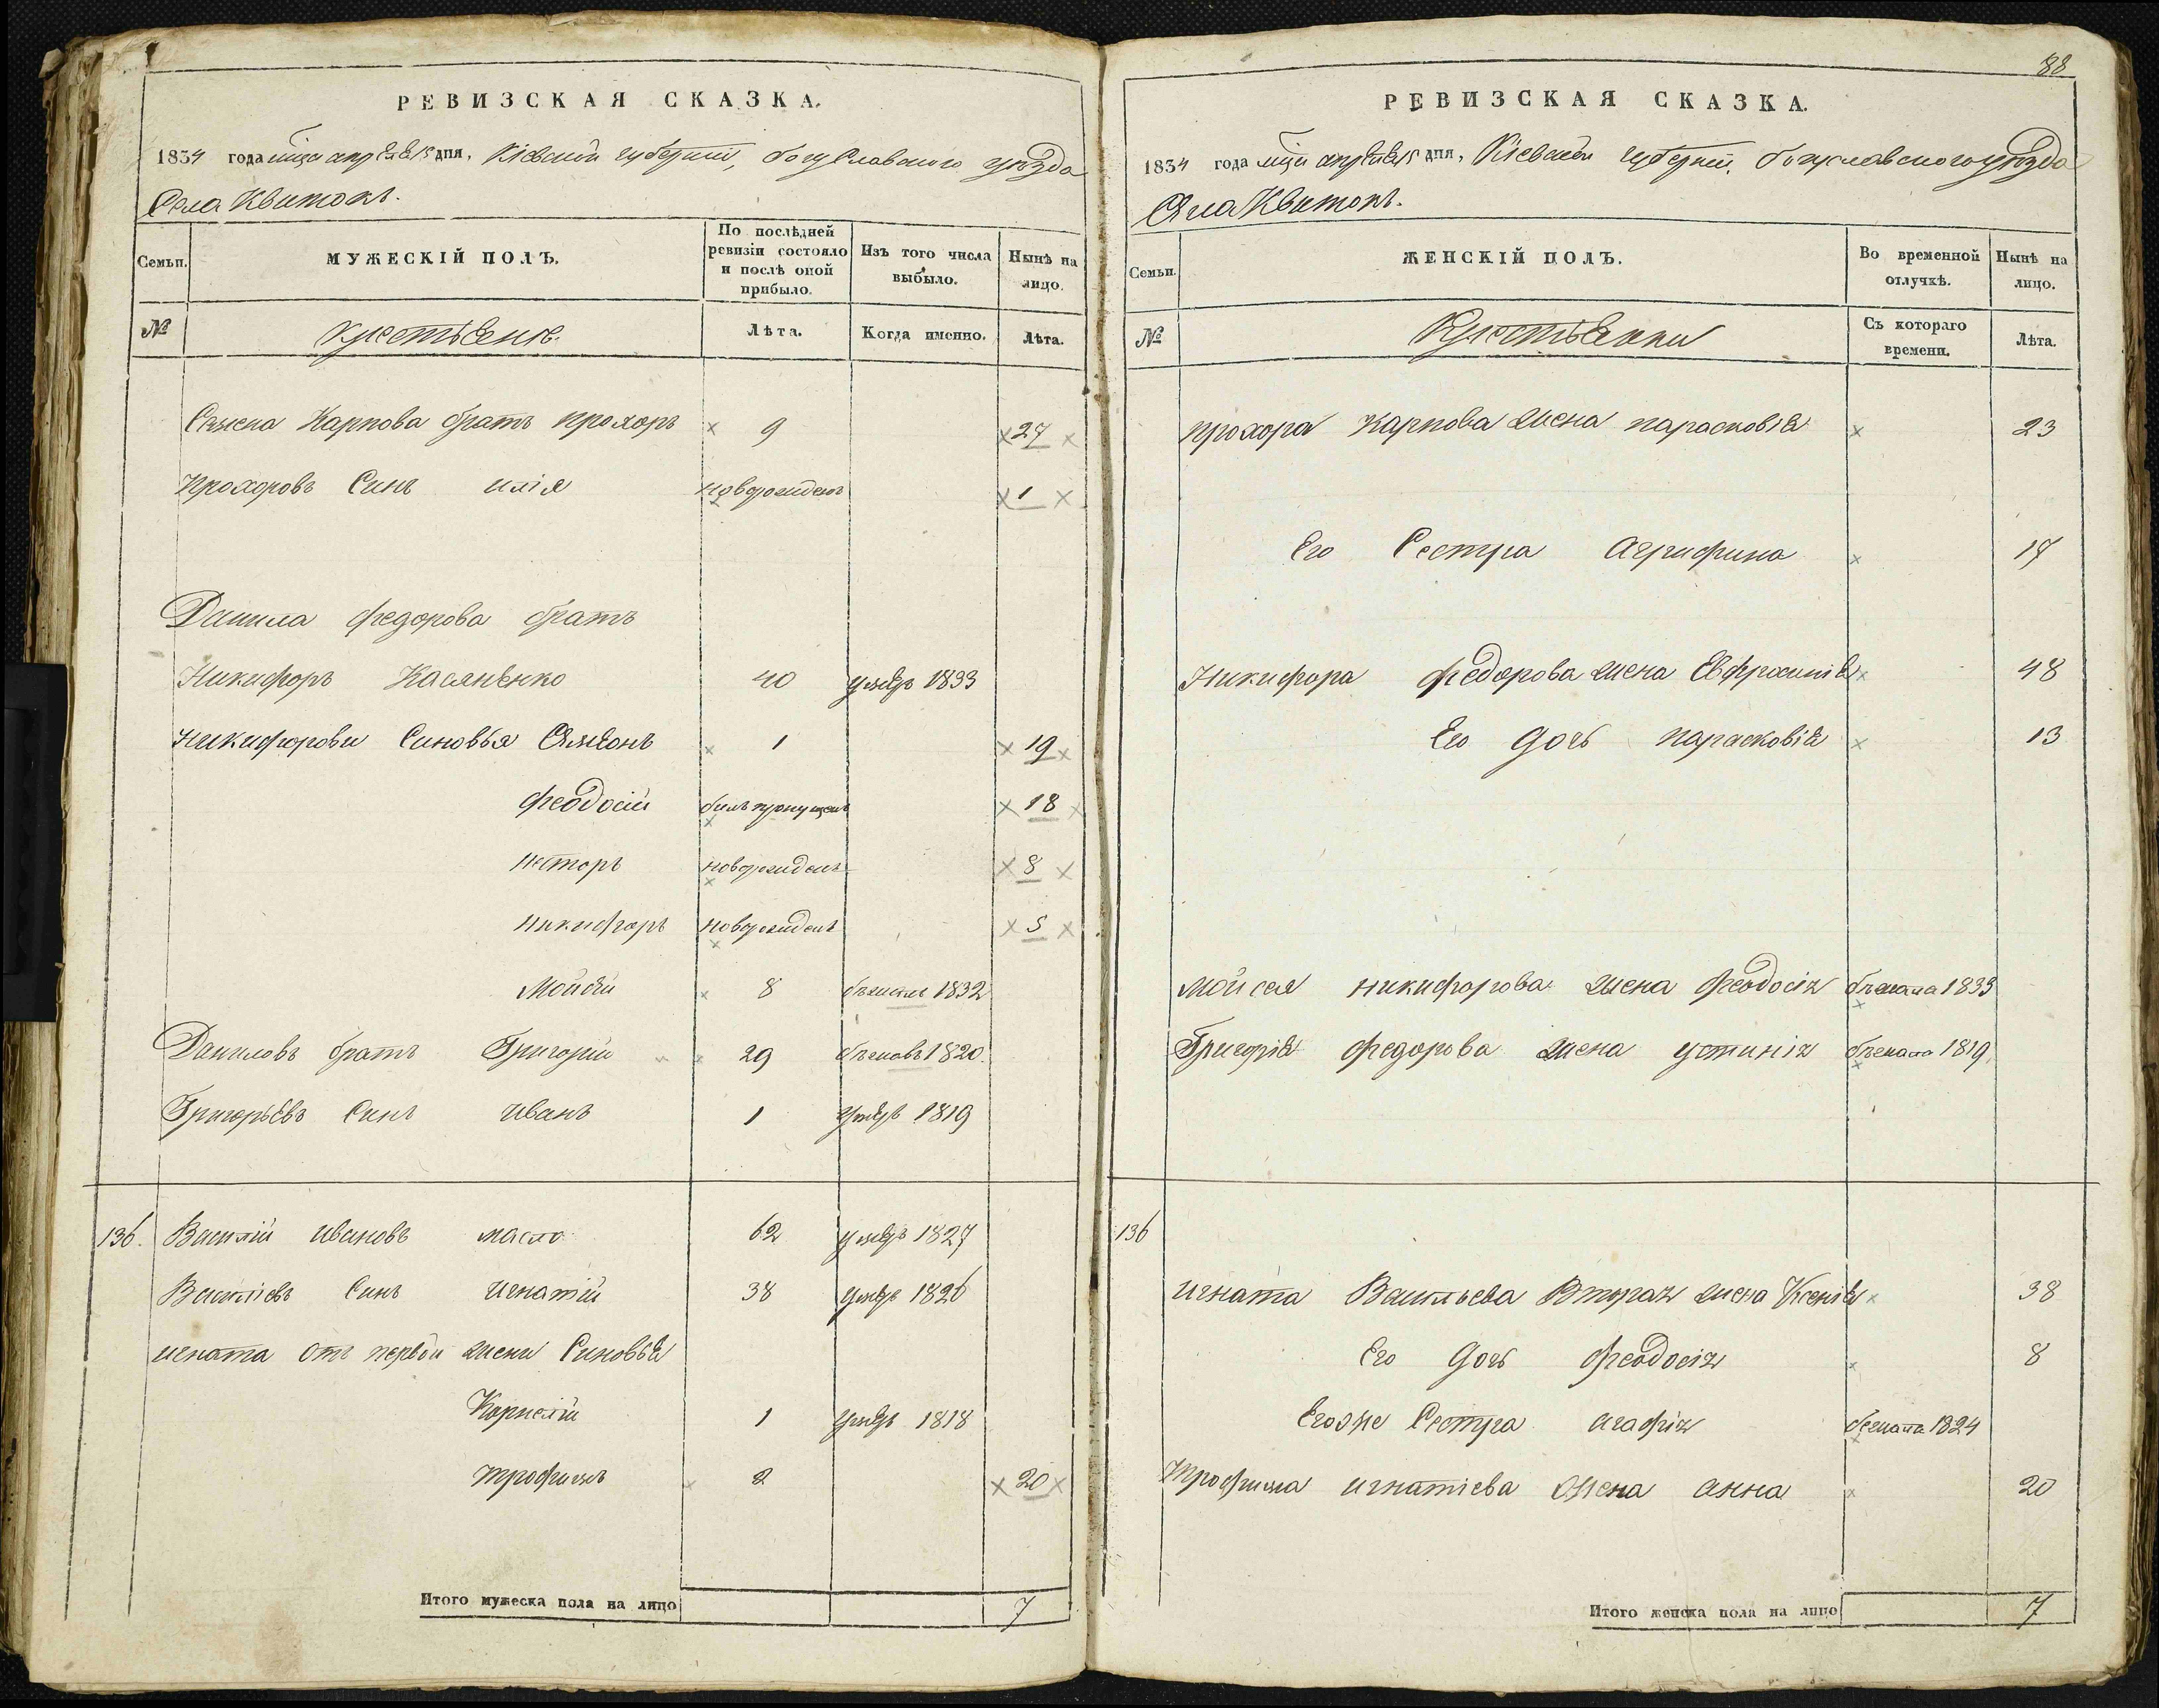 РЕВИЗСКАЯ СКАЗКА.
1834 года мца апреля 15 дня, Кіевской губерніи, богуславского уезда
Села Квитокъ.
Семьи.
МУЖЕСКІЙ ПОЛЪ.
По послѣдней ревизіи состояло и послѣ оной прибыло.
Изъ того числа выбыло.
Нынѣ на лицо.
№
крестьяне.
Лѣта.
Когда именно.
Лѣта.
Карпова братъ прохоръ 9 27
прохоровъ Синъ илія новорожденъ 1
Данила федорова братъ
Никифоръ Касяненко 40 умеръ 1833
никифорови Синовья Семіонъ 1 19
феодосій билъ пропущенъ 18
несторъ новорожденъ 8
никифоръ новорожденъ 5
Мойсей 8 бежалъ 1832
Даниловъ братъ Григорій 29 1820.
Григорьевъ Синъ иванъ 1 умеръ 1819
136. Василій ивановъ масло 62 умеръ 1827
Василіевъ Синъ игнатій 38 умеръ 1826
игната отъ первой жени Синовья
Корнелій 1 умеръ 1818
трофимъ 2 20
Итого мужеска пола на лицо 7
88
РЕВИЗСКАЯ СКАЗКА.
1834 года мца апреля 15 дня, Кіевской губерніи, богуславского уезда
Села Квитокъ.
Семьи.
ЖЕНСКІЙ ПОЛЪ.
Во временной отлучкѣ.
Нынѣ на лицо.
№
Крестьянки
Съ котораго времени.
Лѣта.
прохора карпова жена парасковія 23
Его Сестра агрифина 17
Никифора федорова жена Евфросинія 48
Его дочь парасковія 13
Мойсея никифорова жена феодосія бежала 1833
Григорія федорова жена устинія бежала 1819
136
игната Васильева Вторая жена Ксенія 38
Его дочь феодосія 8
Егоже Сестра агафія бежала 1824
трофима игнатіева жена анна 20
Итого женска пола на лицо 7